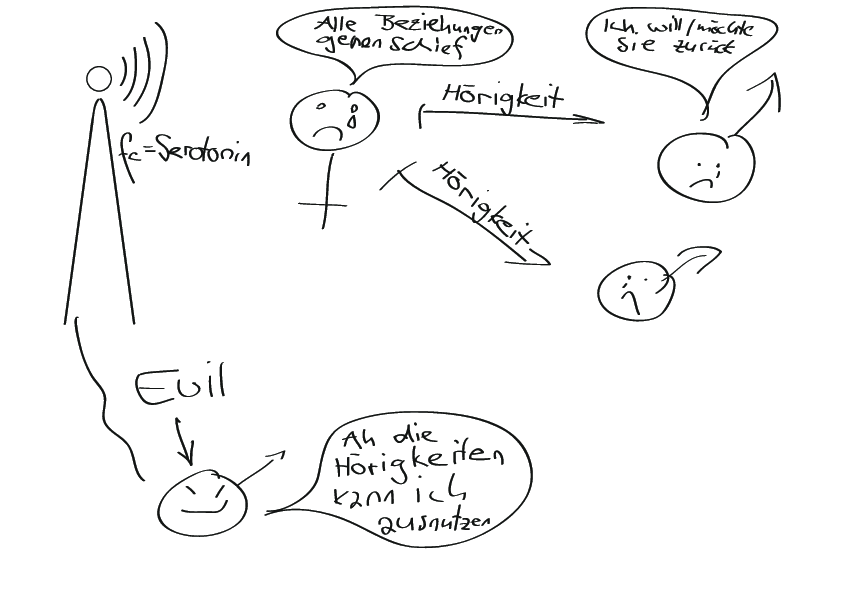 Alle Beziehungen
gehen schief
Ich will/möchte
sie zurück
Hörigkeit
fc=Serotonin
Hörigkeit
Evil
Ah die
Hörigkeiten
kann ich
ausnutzen